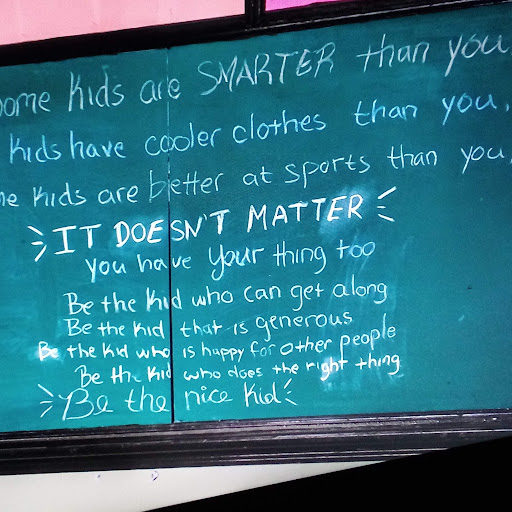 ome Kids are SMARTER than you
Kids have cooler clothes than you.
e Kids are better at sports than you.
IT DOESN'T MATTER
you have your thing too
Be the Kid who can get along
Be the Kid that is generous
Be the Kid who is happy for other people
Be the Kid who does the right thing
Be the nice Kid